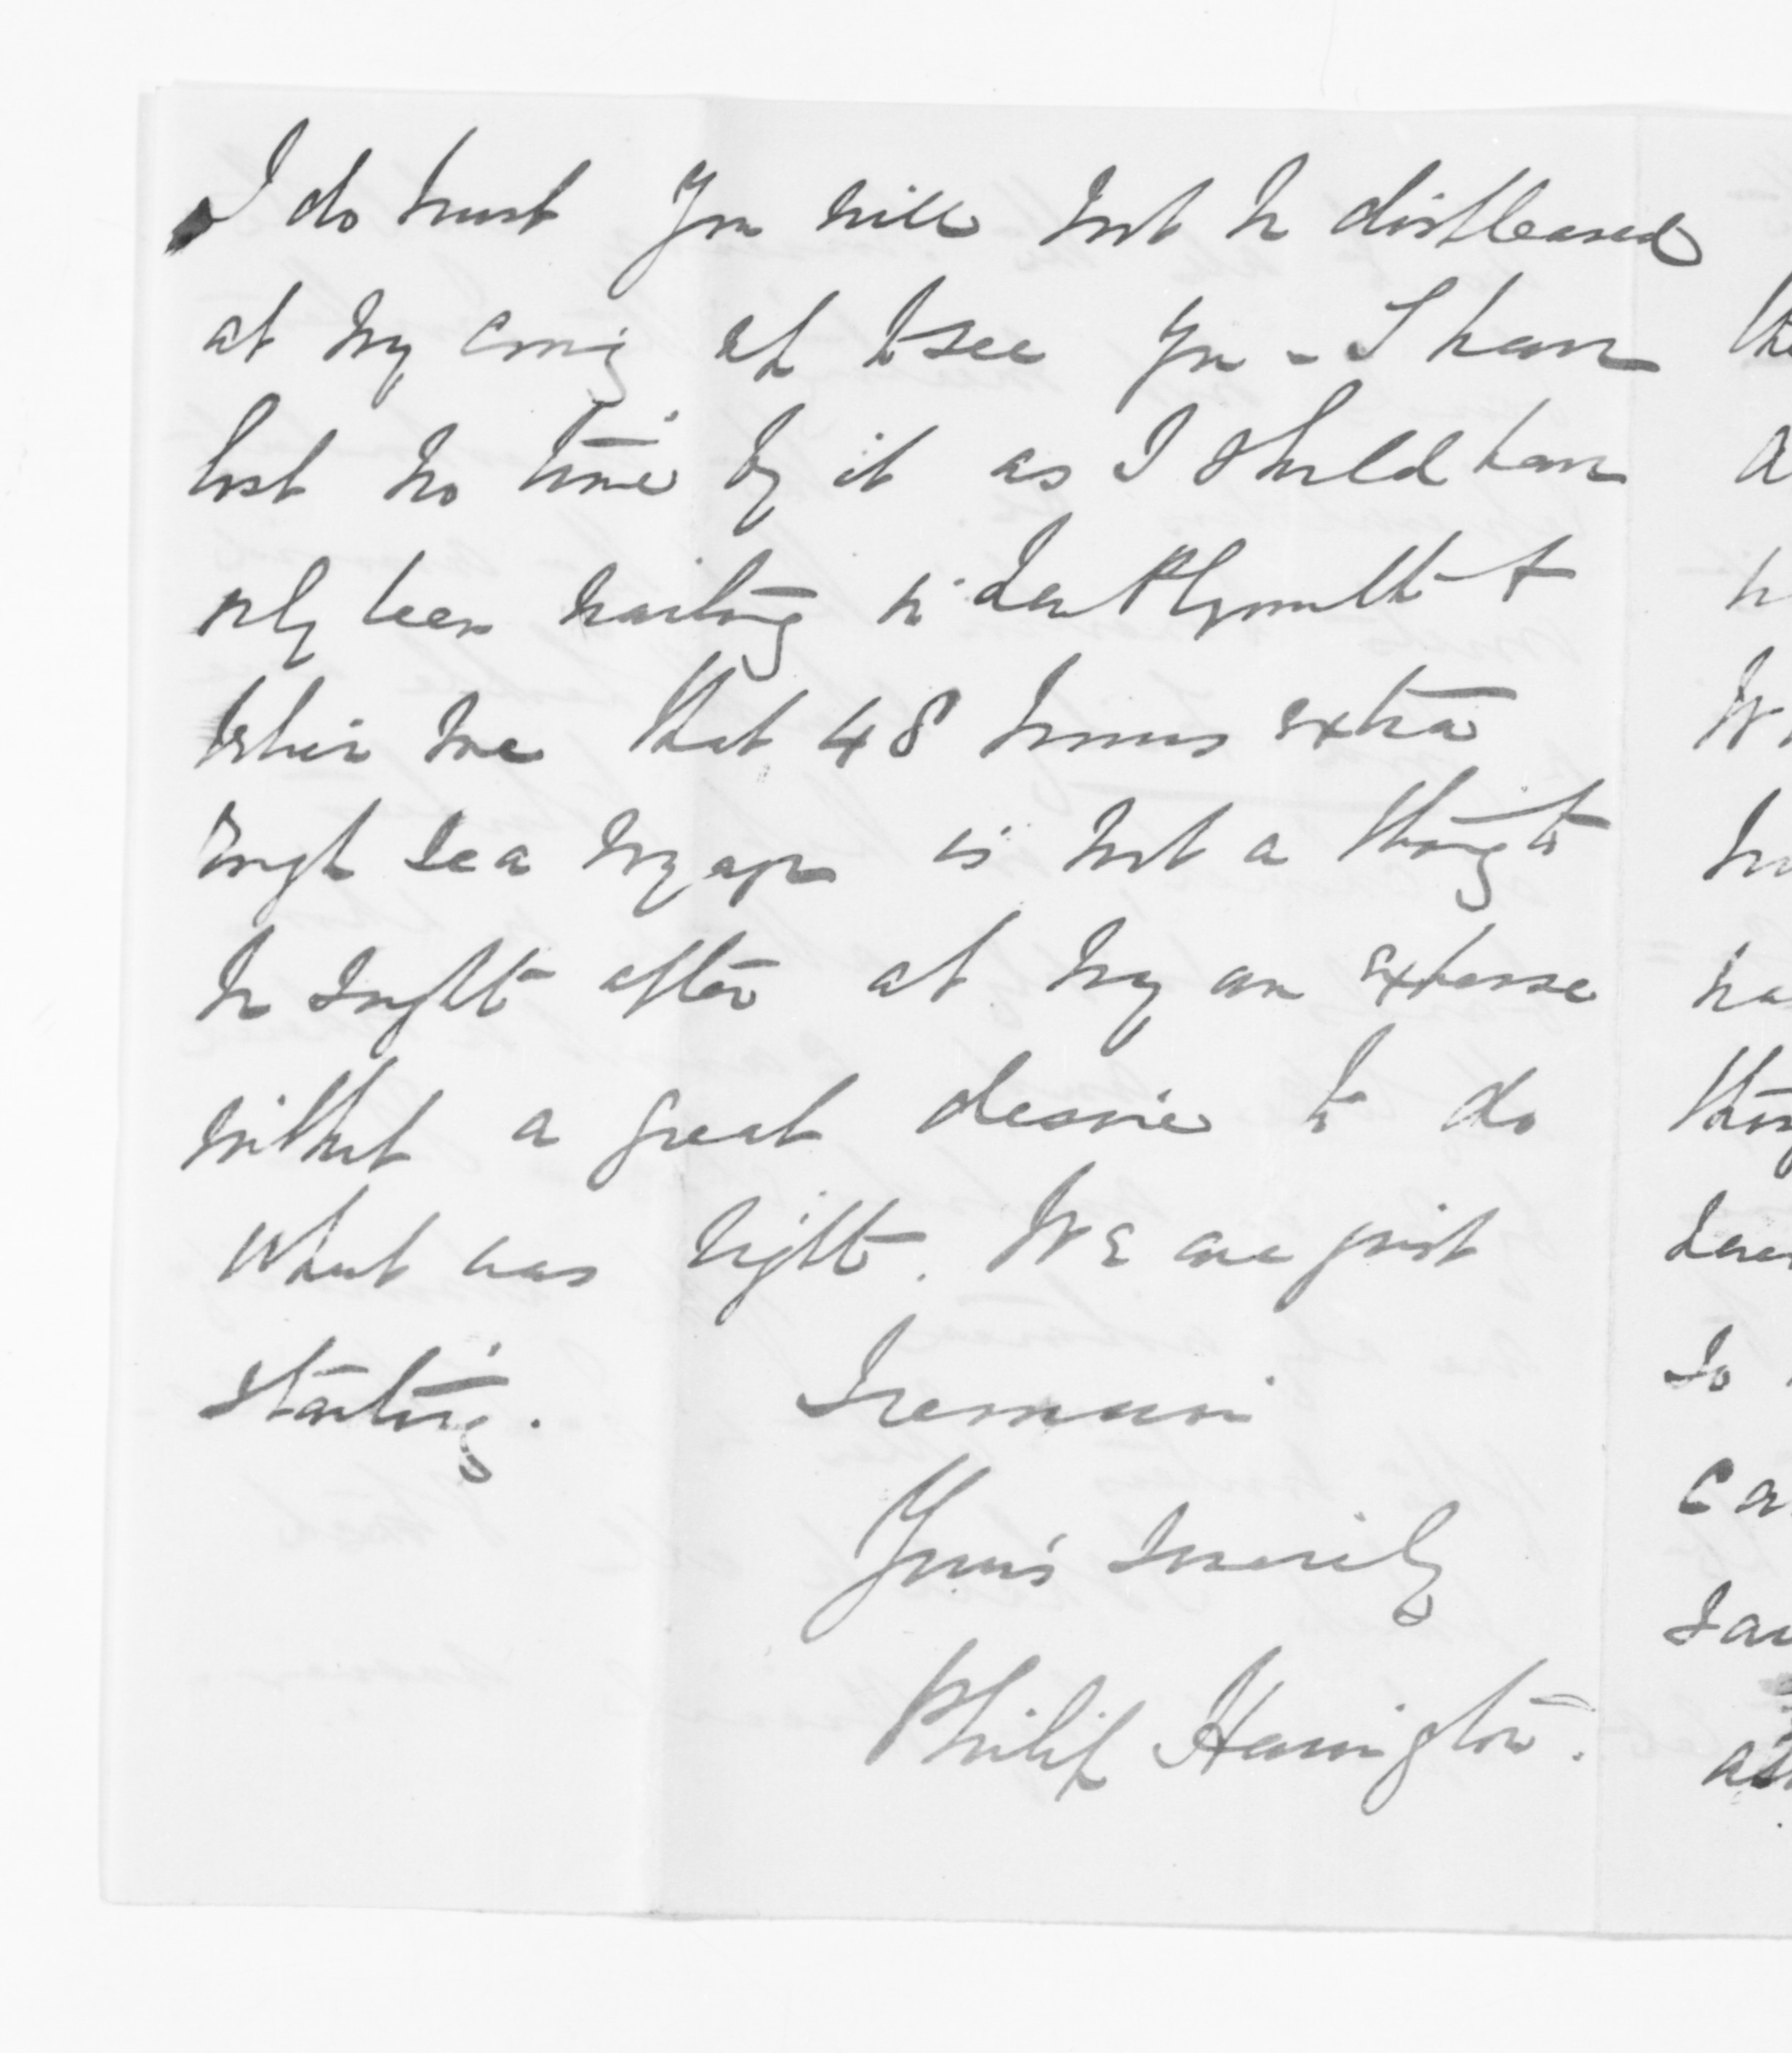 I do trust you will not be displeased
at my coming up to see you - I have
lost no time by it as I should have
only been waiting in New Plymouth &
believe me that 48 hours extra
rough sea voyage is not a thing to
be sought after at my own expense
without a great desire to do
what was right. We are just
starting. I remain
Yours sincerely
Philip Harington.